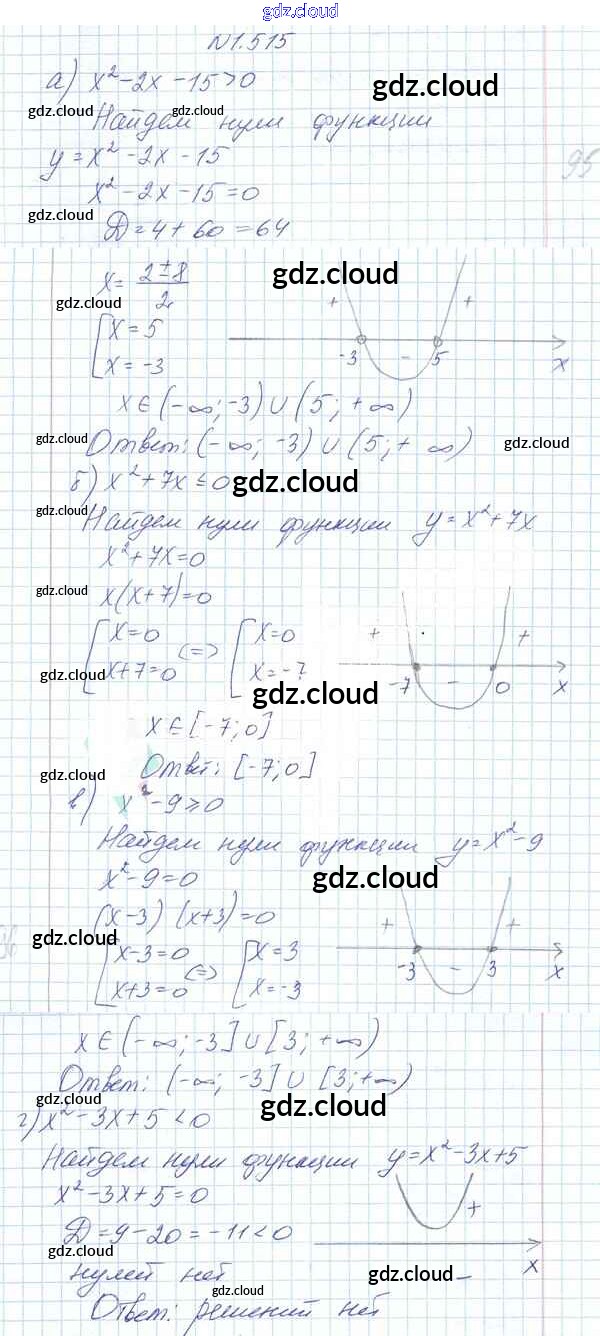 gdz.cloud
N1.515
а) x²-2x-15>0
gdz.cloud
gdz.cloud gdz.cloud
Найдем нули функции
y=x²-2x-15
x²-2x-15=0
95
gdz.cloud
D=4+60=64
x= 2±8 / 2
gdz.cloud
gdz.cloud
[ x=5
x=-3
+ - +
-3 5 x
x∈(-∞;-3)∪(5;+∞)
Ответ: (-∞; -3)∪(5;+ ∞)
gdz.cloud gdz.cloud
б) x²+7x≤0
gdz.cloud
gdz.cloud
Найдем нули функции y=x²+7x
x²+7x=0
gdz.cloud
x(x+7)=0
[ x=0 <=> [ x=0
x+7=0 x=-7
gdz.cloud
gdz.cloud
+ - +
-7 0 x
x∈[-7;0]
Ответ: [-7;0]
gdz.cloud
в) x²-9≥0
Найдем нули функции y=x²-9
x²-9=0
gdz.cloud
(x-3) (x+3)=0
gdz.cloud
[ x-3=0 <=> [ x=3
x+3=0 x=-3
+ - +
-3 3 x
x∈(-∞;-3]∪[3;+∞)
Ответ: (-∞; -3]∪[3;+∞)
gdz.cloud
г) x²-3x+5<0
Найдем нули функции y=x²-3x+5
x²-3x+5=0
D=9-20=-11<0
+
x
gdz.cloud
нулей нет
gdz.cloud
gdz.cloud
Ответ: решений нет
gdz.cloud